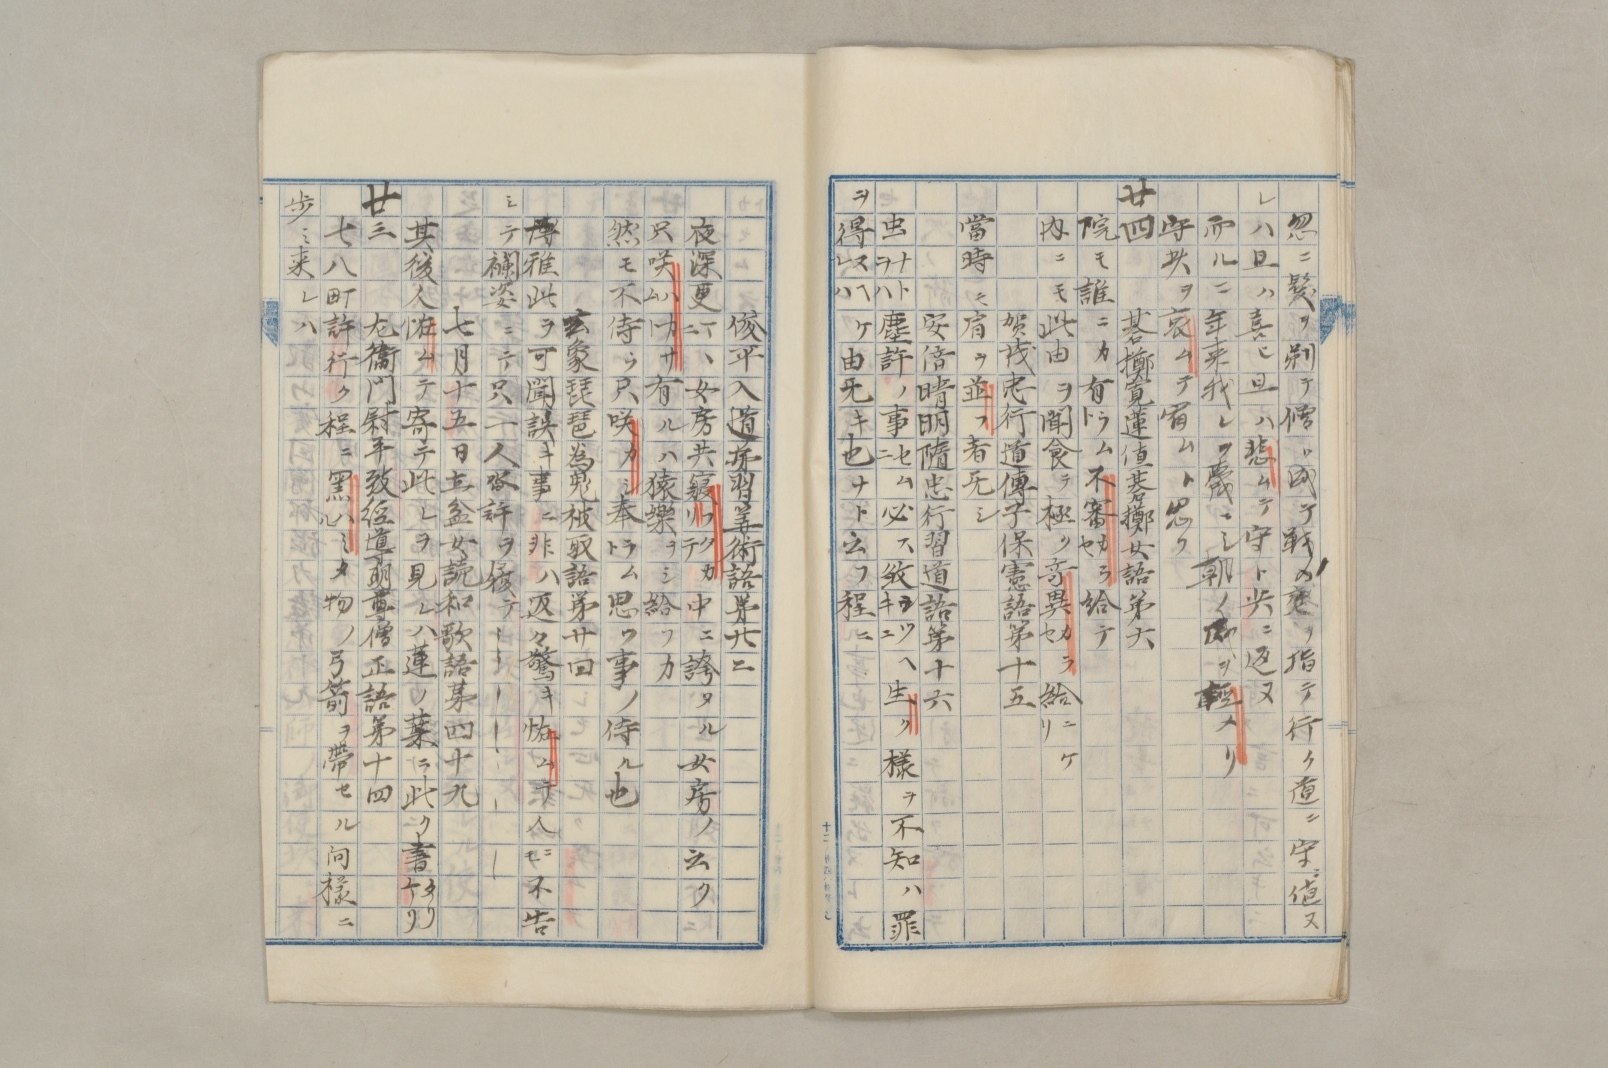 忽ニ髪ヲ剃テ僧ニ成テ戦ノ庭ヨリ指テ行ク道ニ守ニ値ヌ
レハ且ハ喜ヒ且ハ悲ムテ守ト共ニ返ヌ
而ルニ年来我レヲ蔑ニシ朝ノ威ヲ軽メリ
守共ヲ哀ムテ宥ムト思ク
廿四 碁擲寛蓮値碁擲女語第六
院モ誰ニカ有ラムト不審カラセ給テ
内ニモ此由ヲ聞食テ極ク奇異カラセ給ニケリ
賀茂忠行道傳子保憲語第十五
當時ニモ肩ヲ並フ者无シ
安倍晴明隨忠行習道語第十六
虫ナトヲハ塵許ノ事セムニ必ス致キツヘキニ生ク様ヲ不知ハ罪
ヲ得ヌヘケレハ由无キ也ナト云フ程ニ
俊平入道弟習筭術語第廿二
夜深更ニテハ女房共寝ワリテクカ中ニ誇タル女房ノ云ク
只咲ハカサムハ有ルハ猿樂ヲシ給フカ
然モ不侍ラ只咲カシ奉ラムト思フ事ノ侍ル也
玄象琵琶為鬼被取語第廿四
博雅此ヲ可聞誤キ事ニ非ハ返々驚キ怖ムテ人ニモ不告
シテ襴姿ニテ只一人沓許ヲ履テ
七月十五日立盆女読和歌語第四十九
其後人怪ムテ寄テ此レヲ見レハ蓮ノ葉ニ此ク書タリケリ
廿三 左衞門尉平致經導明尊僧正語第十四
七八町許行ク程ニ黒ハミタル物ノ弓箭ヲ帶セル同様ニ
歩ミ来レハ